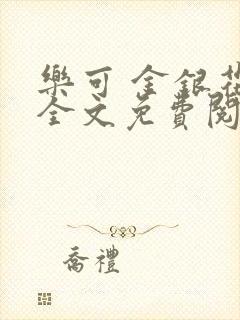 樂可 金銀花
全文免費閱
喬禮